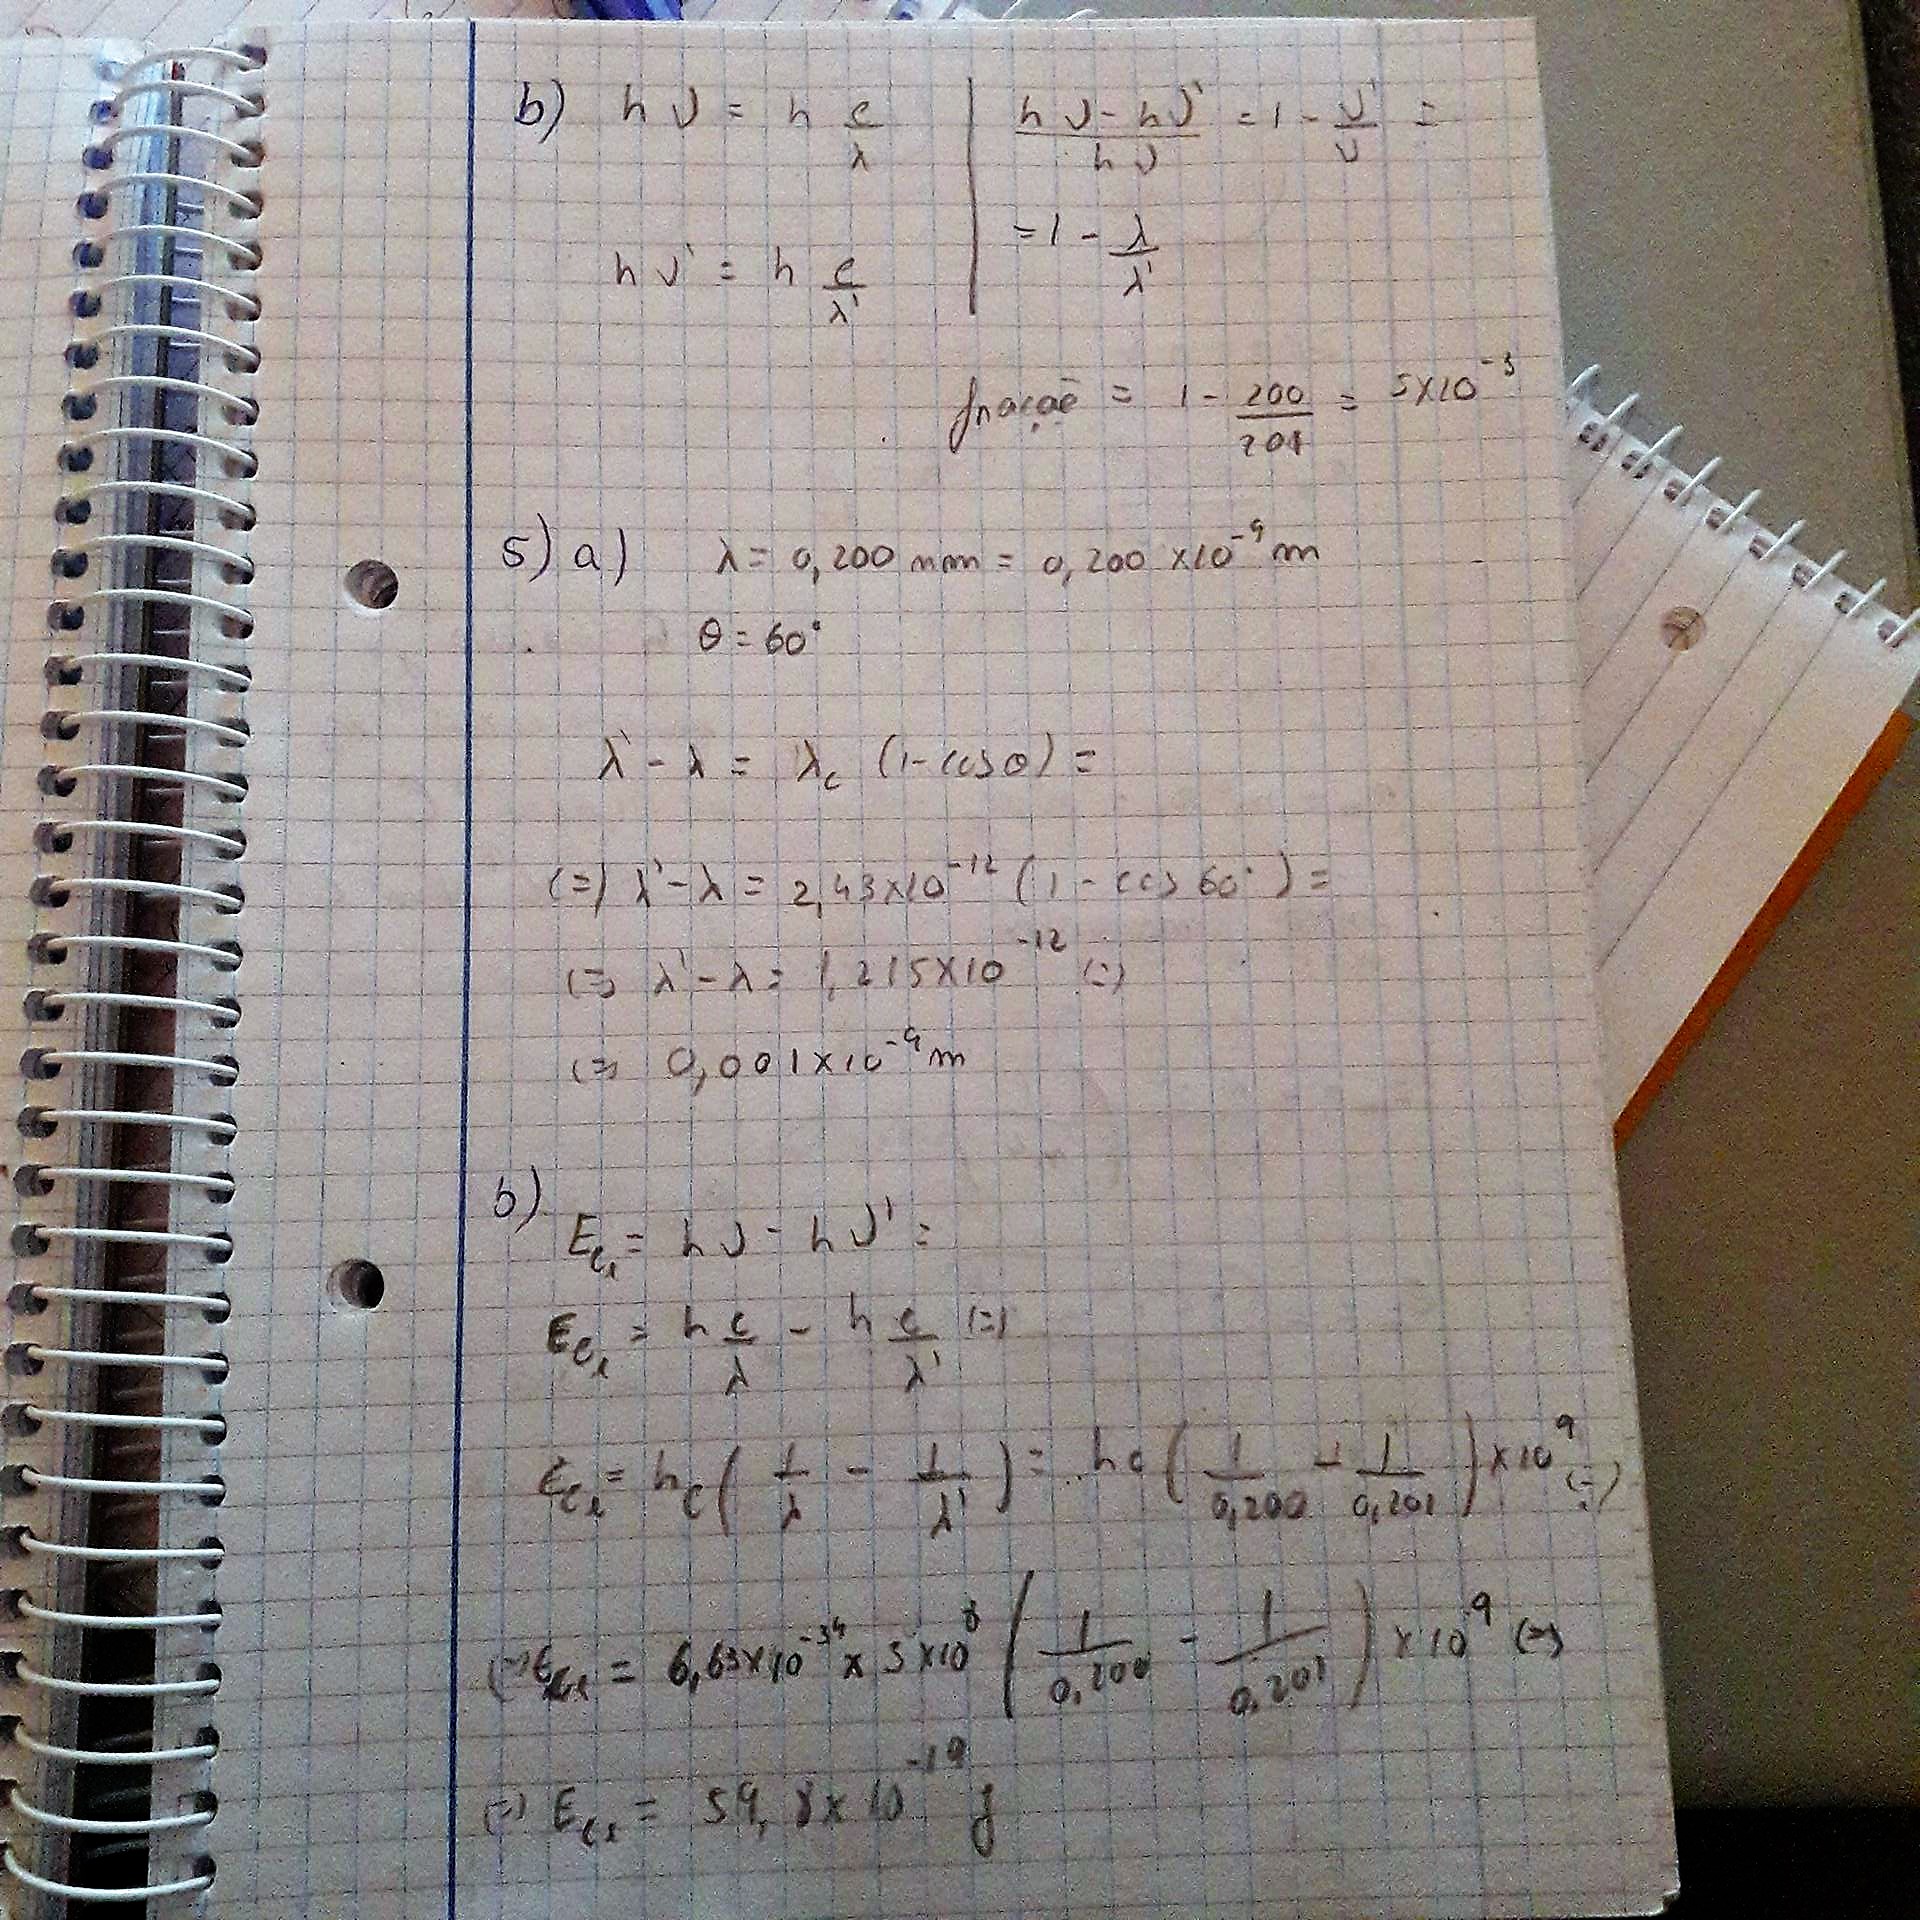 b) hν = h c/λ
hν' = h c/λ'
(hν - hν')/(hν) = 1 - ν'/ν =
= 1 - λ/λ'
fração = 1 - 200/201 = 5×10⁻³
5) a) λ = 0,200 nm = 0,200 ×10⁻⁹ m
θ = 60°
λ' - λ = λc (1 - cos θ) =
(=) λ' - λ = 2,43×10⁻¹² (1 - cos 60°) =
(=) λ' - λ = 1,215×10⁻¹² (=)
(=) 0,001×10⁻⁹ m
b)
Ec₁ = hν - hν' =
Ec₁ = h c/λ - h c/λ' (=)
Ec₁ = hc (1/λ - 1/λ') = hc (1/0,200 - 1/0,201) ×10⁹ (=)
(=) Ec₁ = 6,63×10⁻³⁴ × 3×10⁸ (1/0,200 - 1/0,201) ×10⁹ (=)
(=) Ec₁ = 59,8×10⁻¹⁹ J